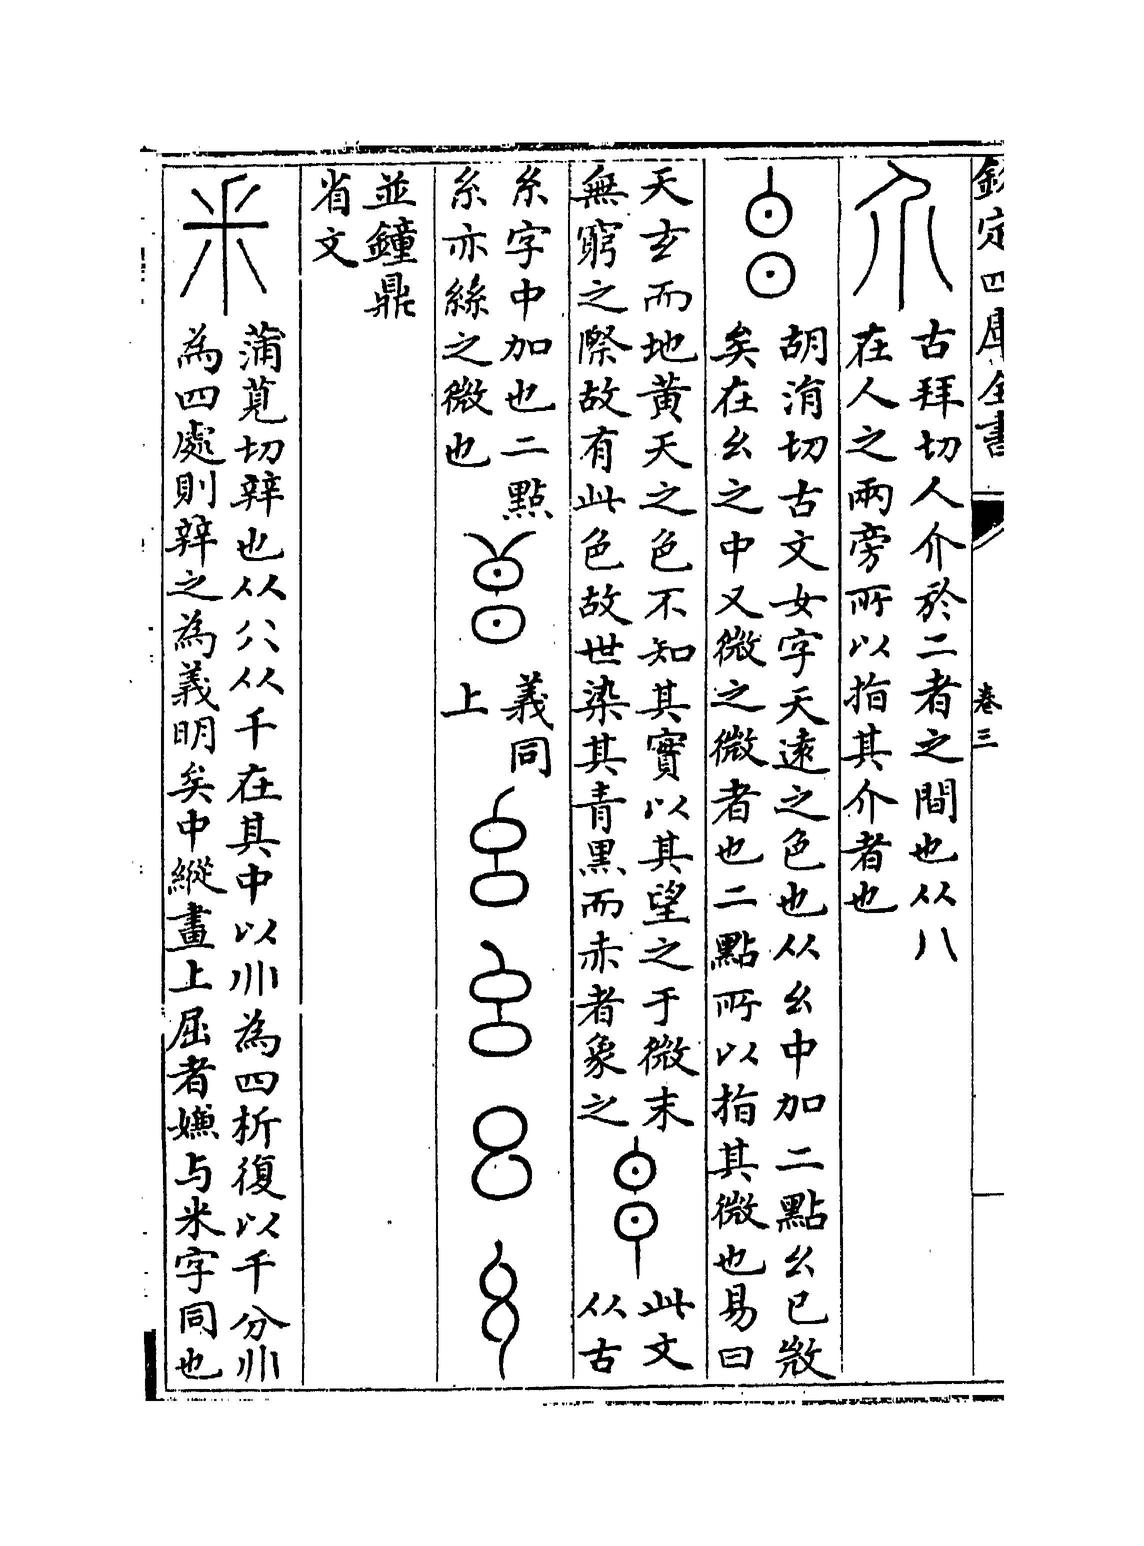 欽定四庫全書
卷三
古拜切人介於二者之間也从八
在人之兩旁所以指其介者也
胡涓切古文玄字天遠之色也从幺中加二點幺已微
矣在幺之中又微之微者也二點所以指其微也易曰
天玄而地黄天之色不知其實以其望之于微末
無窮之際故有此色故世染其青黒而赤者象之
此文
从古
糸字中加也二點
糸亦絲之微也
義同
上
並鐘鼎
省文
蒲莧切辨也从八从千在其中以 為四析復以千分
為四處則辨之為義明矣中縱畫上屈者嫌与米字同也